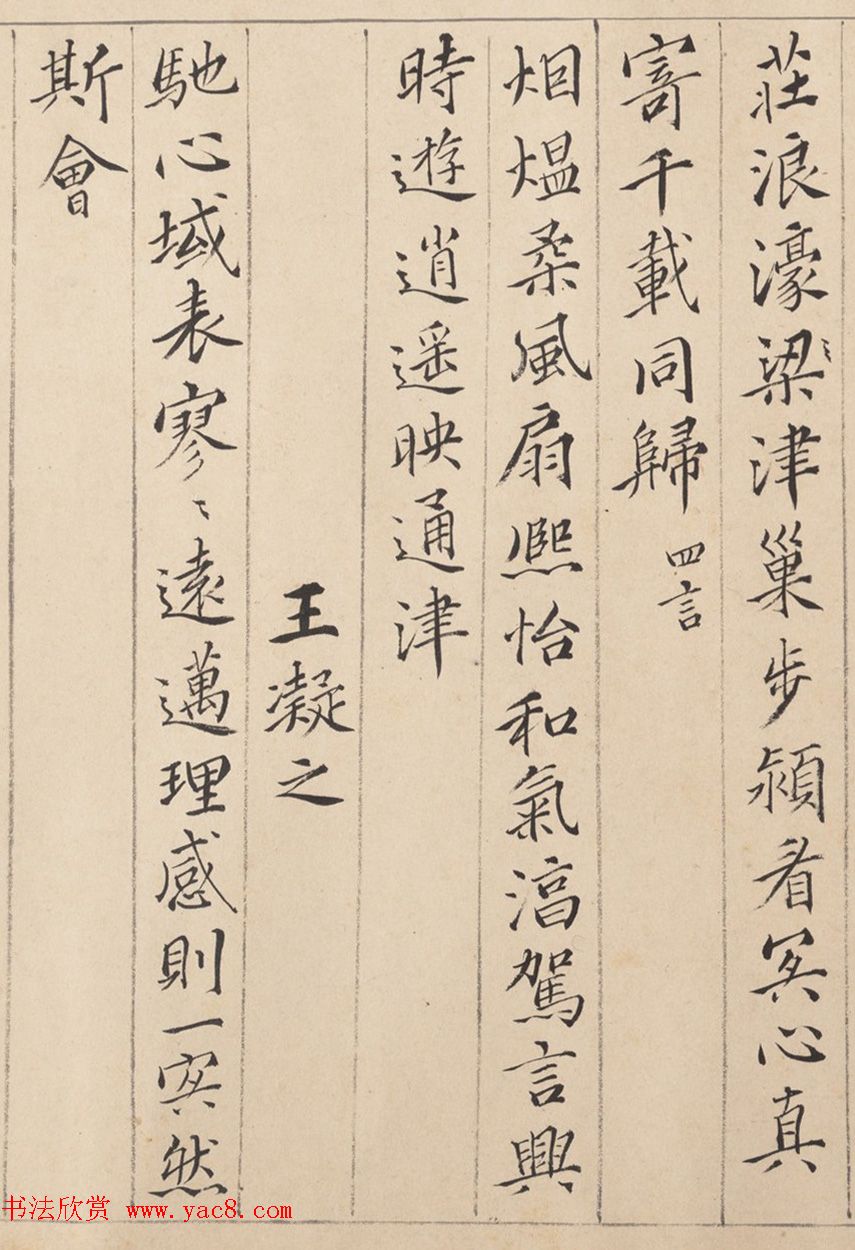 莊浪濠梁〻津巢步潁看冥心真
寄千載同歸 四言
烟熅柔風扇熈怡和氣淳駕言興
時遊逍遥映通津
王凝之
馳心域表寥〻遠邁理感則一冥然
斯會
书法欣赏 www.yac8.com